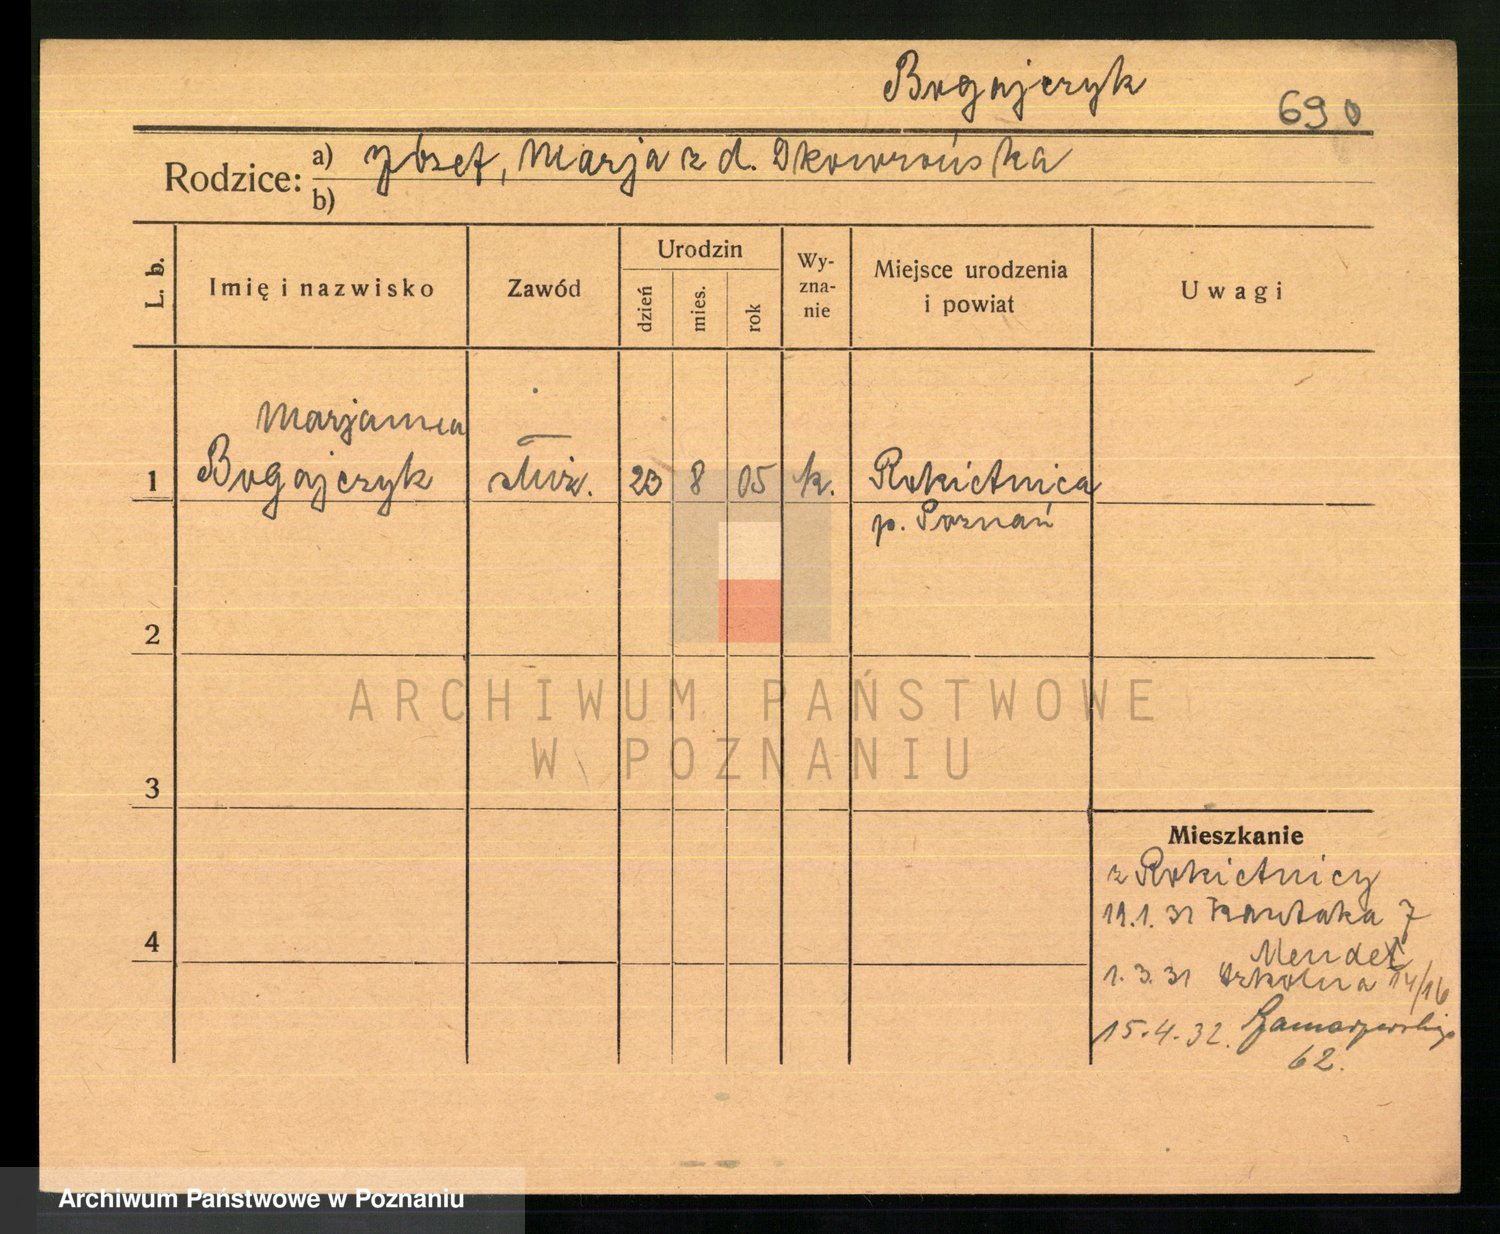 Bogajczyk
690
Rodzice: a) Józef, Marja z d. Skowrońska
b)
L. b.
Imię i nazwisko
Zawód
Urodzin
dzień
mies.
rok
Wy-
zna-
nie
Miejsce urodzenia
i powiat
Uwagi
Marjanna
1 Bogajczyk służ. 23 8 05 k. Rokietnica
p. Poznań
2
ARCHIWUM PAŃSTWOWE
W POZNANIU
3
Mieszkanie
z Rokietnicy
19.1.31 Kantaka 7
4
Mendel
1.3.31 Szkolna 14/16
15.4.32.
62.
Archiwum Państwowe w Poznaniu